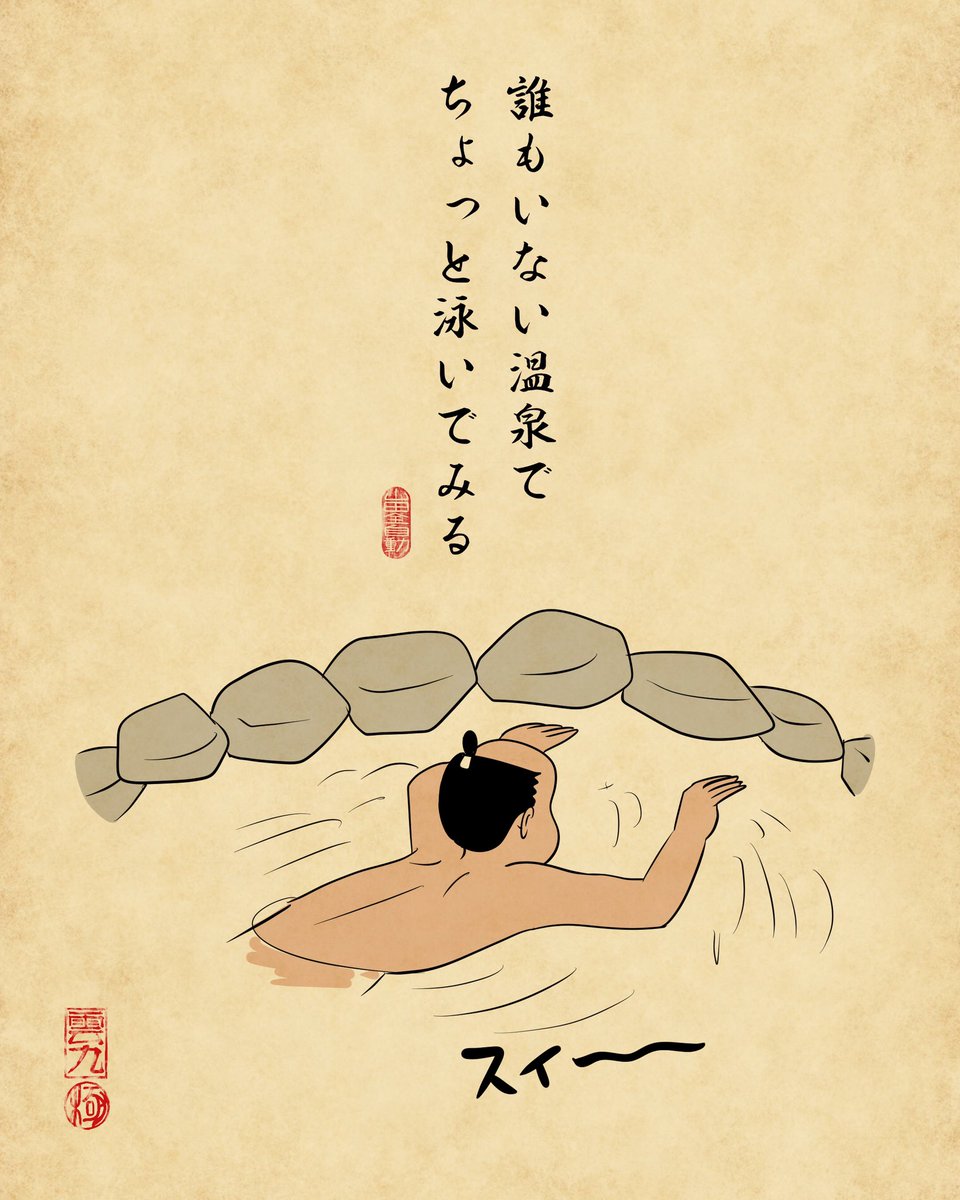 誰もいない温泉で
ちょっと泳いでみる
スイ〜